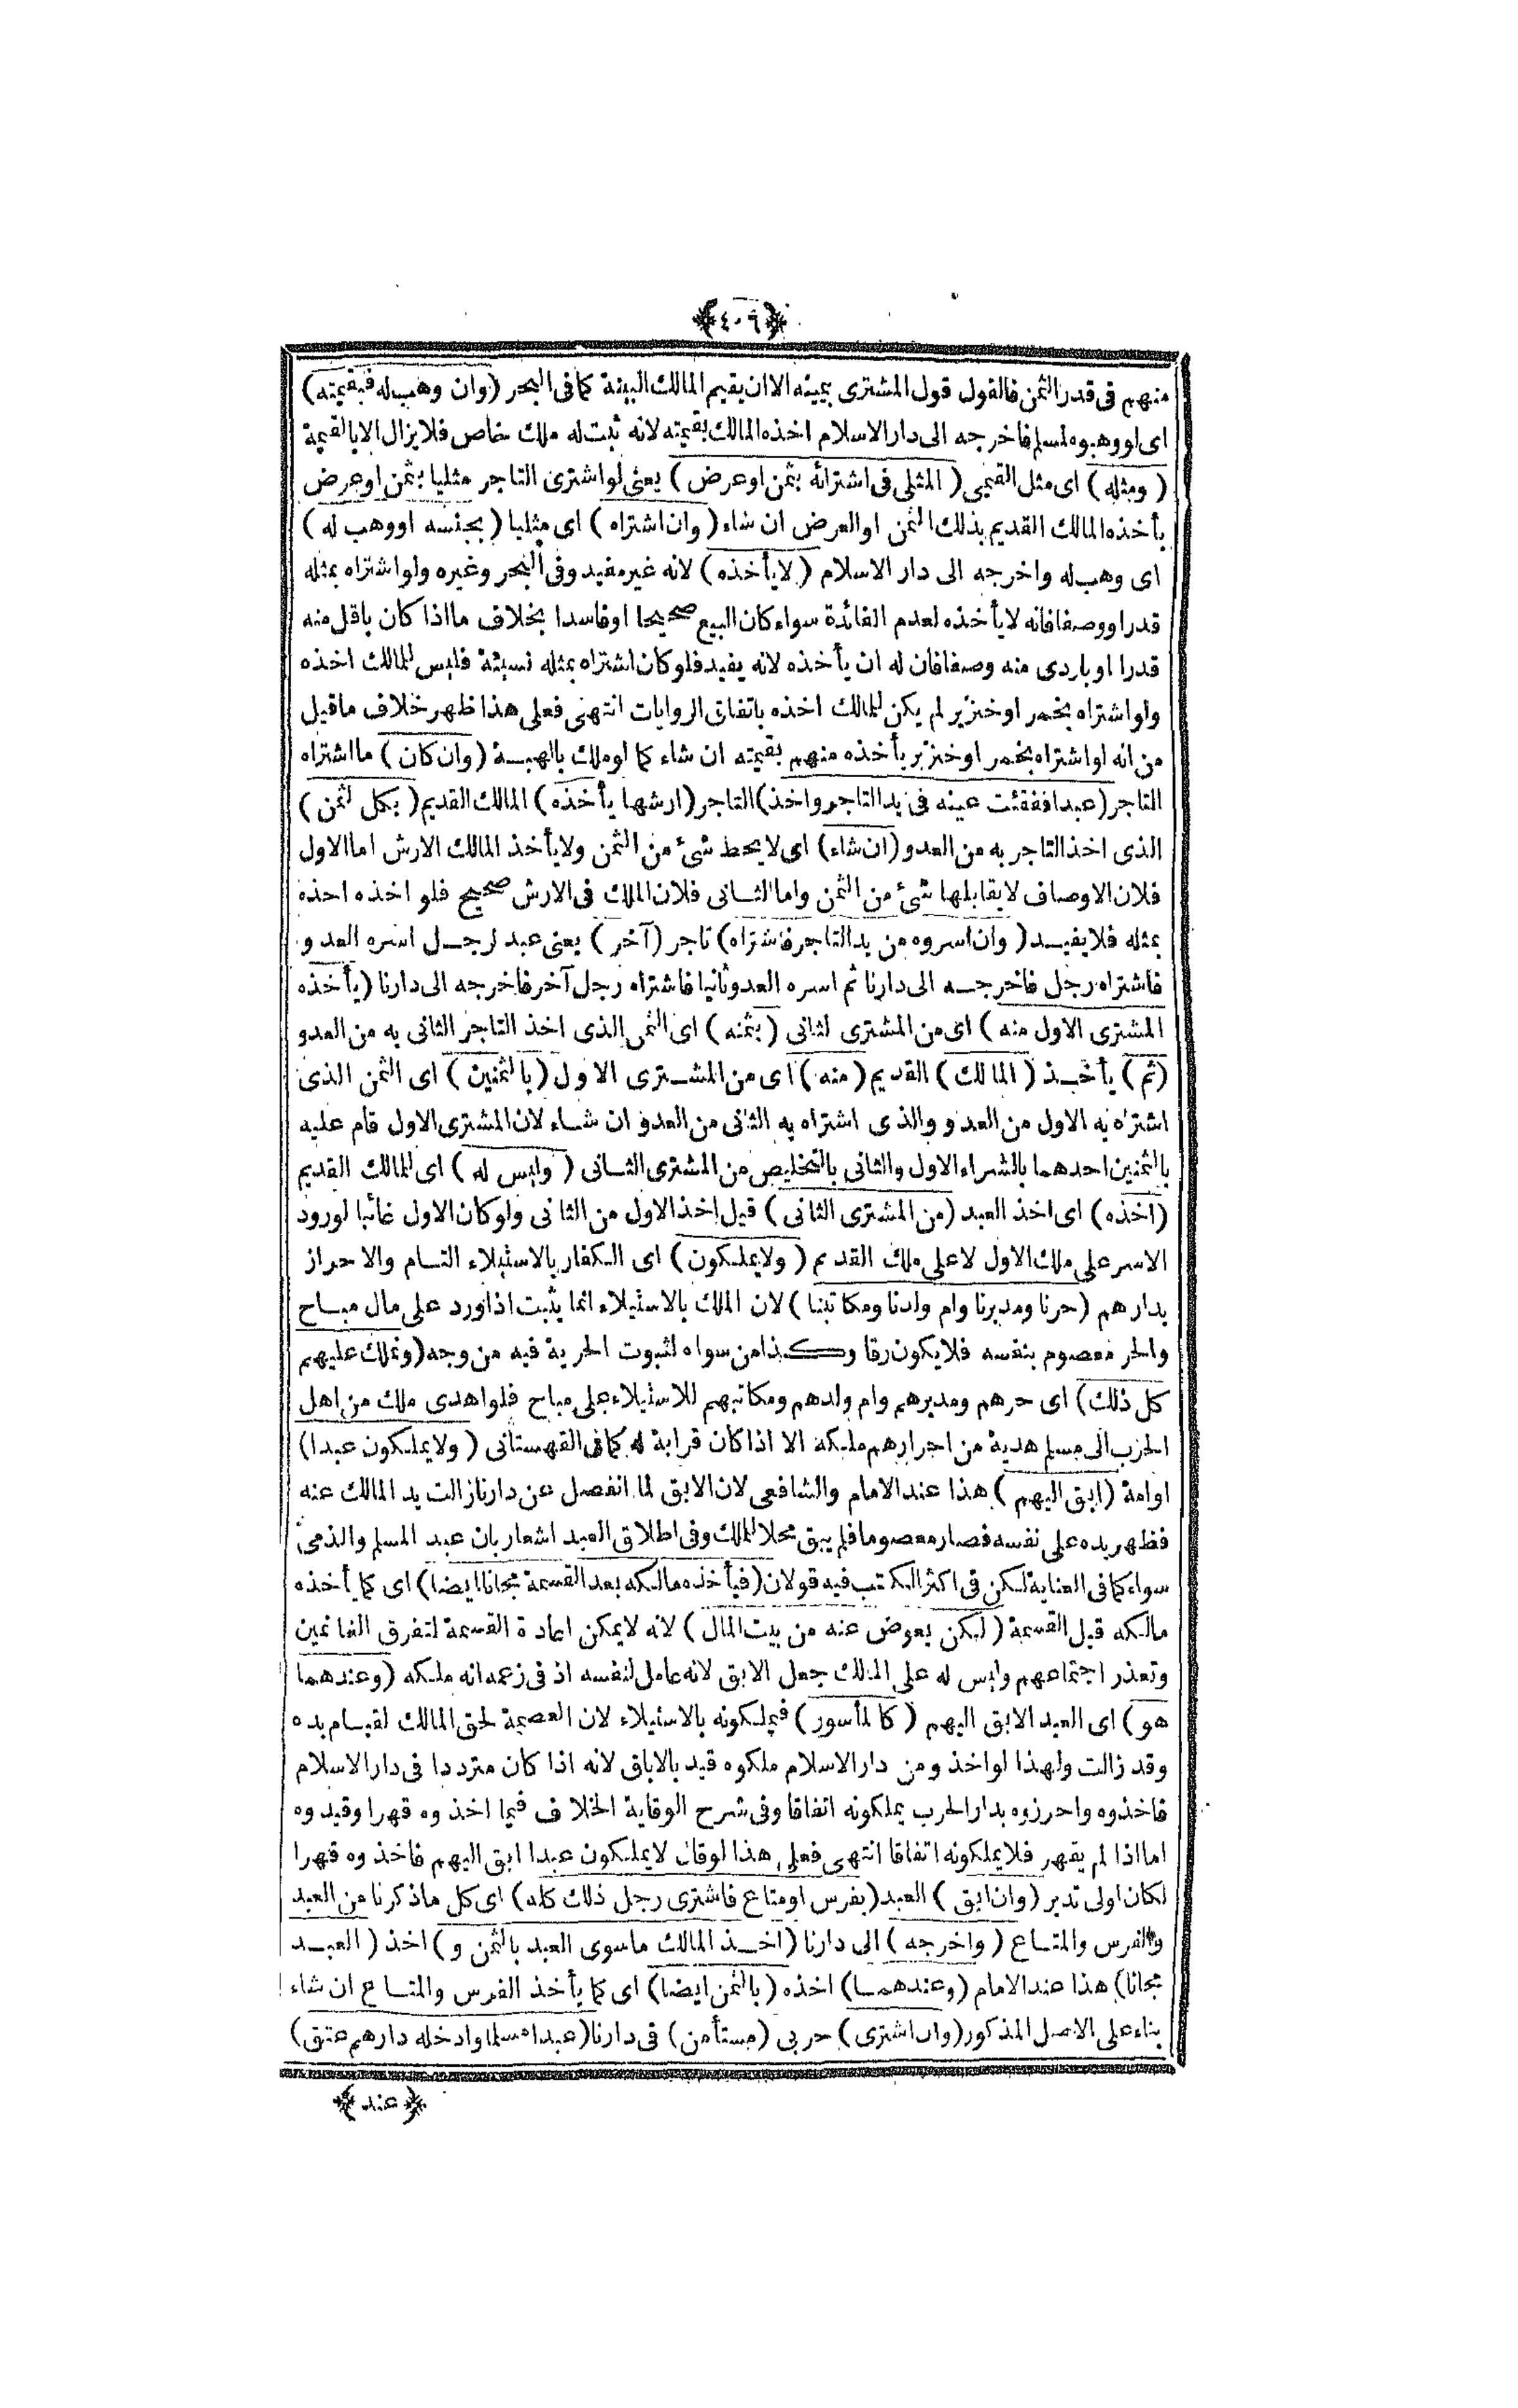 ﴿٤٠٩﴾
منهم فى قدر الثمن فالقول قول المشترى بيمينه الا ان يقيم المالك البينة كما فى البحر (وان وهب له فبقيمته)
اى لو وهبوه لمسلم فاخرجه الى دار الاسلام اخذه المالك بقيمته لانه ثبت له ملك خاص فلا يزال الا بالقيمة
(ومثله) اى مثل القيمى (المثلى فى اشترائه بثمن او عرض) يعنى لو اشترى التاجر مثليا بثمن او عرض
يأخذه المالك القديم بذلك الثمن او العرض ان شاء (وان اشتراه) اى مثليا (بجنسه او وهب له)
اى وهب له واخرجه الى دار الاسلام (لا يأخذه) لانه غير مفيد وفى البحر وغيره ولو اشتراه بمثله
قدرا ووصفا فانه لا يأخذه لعدم الفائدة سواء كان البيع صحيحا او فاسدا بخلاف ما اذا كان باقل منه
قدرا او باردى منه وصفا فان له ان يأخذه لانه يفيد فلو كان اشتراه بمثله نسيئة فليس للمالك اخذه
ولو اشتراه بخمر او خنزير لم يكن للمالك اخذه باتفاق الروايات انتهى فعلى هذا ظهر خلاف ما قيل
من انه لو اشتراه بخمر او خنزير يأخذه منهم بقيمته ان شاء كما لو ملك بالهبة (وان كان) ما اشتراه
التاجر (عبدا ففقئت عينه فى يد التاجر واخذ) التاجر (ارشها يأخذه) المالك القديم (بكل الثمن)
الذى اخذ التاجر به من العدو (ان شاء) اى لا يحط شئ من الثمن ولا يأخذ المالك الارش اما الاول
فلان الاوصاف لا يقابلها شئ من الثمن واما الثانى فلان الملك فى الارش صحيح فلو اخذه اخذه
بمثله فلا يفيد (وان اسروه من يد التاجر فاشتراه) تاجر (آخر) يعنى عبد لرجل اسره العدو
فاشتراه رجل فاخرجه الى دارنا ثم اسره العدو ثانيا فاشتراه رجل آخر فاخرجه الى دارنا (يأخذه
المشترى الاول منه) اى من المشترى لثانى (بثمنه) اى الثمن الذى اخذ التاجر الثانى به من العدو
(ثم) يأخذ (المالك) القديم (منه) اى من المشترى الاول (بالثمنين) اى الثمن الذى
اشتراه به الاول من العدو والذى اشتراه به الثانى من العدو ان شاء لان المشترى الاول قام عليه
بالثمنين احدهما بالشراء الاول والثانى بالتخليص من المشترى الثانى (وليس له) اى للمالك القديم
(اخذه) اى اخذ العبد (من المشترى الثانى) قبل اخذ الاول من الثانى ولو كان الاول غائبا لورود
الاسر على ملك الاول لا على ملك القديم (ولا يملكون) اى الكفار بالاستيلاء التام والاحراز
بدارهم (حرنا ومدبرنا وام ولدنا ومكاتبنا) لان الملك بالاستيلاء انما يثبت اذا ورد على مال مباح
والحر معصوم بنفسه فلا يكون رقا وكذا من سواه لثبوت الحرية فيه من وجه (ونملك عليهم
كل ذلك) اى حرهم ومدبرهم وام ولدهم ومكاتبهم للاستيلاء على مباح فلو اهدى ملك من اهل
الحرب الى مسلم هدية من احرارهم ملكه الا اذا كان قرابة له كما فى القهستانى (ولا يملكون عبدا)
او امة (ابق اليهم) هذا عند الامام والشافعى لان الابق لما انفصل عن دارنا زالت يد المالك عنه
فظهر يده على نفسه فصار معصوما فلم يبق محلا للملك وفى اطلاق العبد اشعار بان عبد المسلم والذمى
سواء كما فى العناية لكن فى اكثر الكتب فيه قولان (فيأخذه مالكه بعد القسمة مجانا ايضا) اى كما يأخذه
مالكه قبل القسمة (لكن يعوض عنه من بيت المال) لانه لا يمكن اعادة القسمة لتفرق الغانمين
وتعذر اجتماعهم وليس له على المالك جعل الابق لانه عامل لنفسه اذ فى زعمه انه ملكه (وعندهما
هو) اى العبد الابق اليهم (كالمأسور) فيملكونه بالاستيلاء لان العصمة لحق المالك لقيام يده
وقد زالت ولهذا لو اخذ ومن دار الاسلام ملكوه قيد بالاباق لانه اذا كان مترددا فى دار الاسلام
فاخذوه واحرزوه بدار الحرب يملكونه اتفاقا وفى شرح الوقاية الخلاف فيما اخذوه قهرا وقيدوه
اما اذا لم يقهر فلا يملكونه اتفاقا انتهى فعلى هذا لو قال لا يملكون عبدا ابق اليهم فاخذوه قهرا
لكان اولى تدبر (وان ابق) العبد (بفرس او متاع فاشترى رجل ذلك كله) اى كل ما ذكرنا من العبد
والفرس والمتاع (واخرجه) الى دارنا (اخذ المالك ما سوى العبد بالثمن و) اخذ (العبد
مجانا) هذا عند الامام (وعندهما) اخذه (بالثمن ايضا) اى كما يأخذ الفرس والمتاع ان شاء
بناء على الاصل المذكور (وان اشترى) حربى (مستأمن) فى دارنا (عبدا مسلما وادخله دارهم عتق)
﴿عند﴾